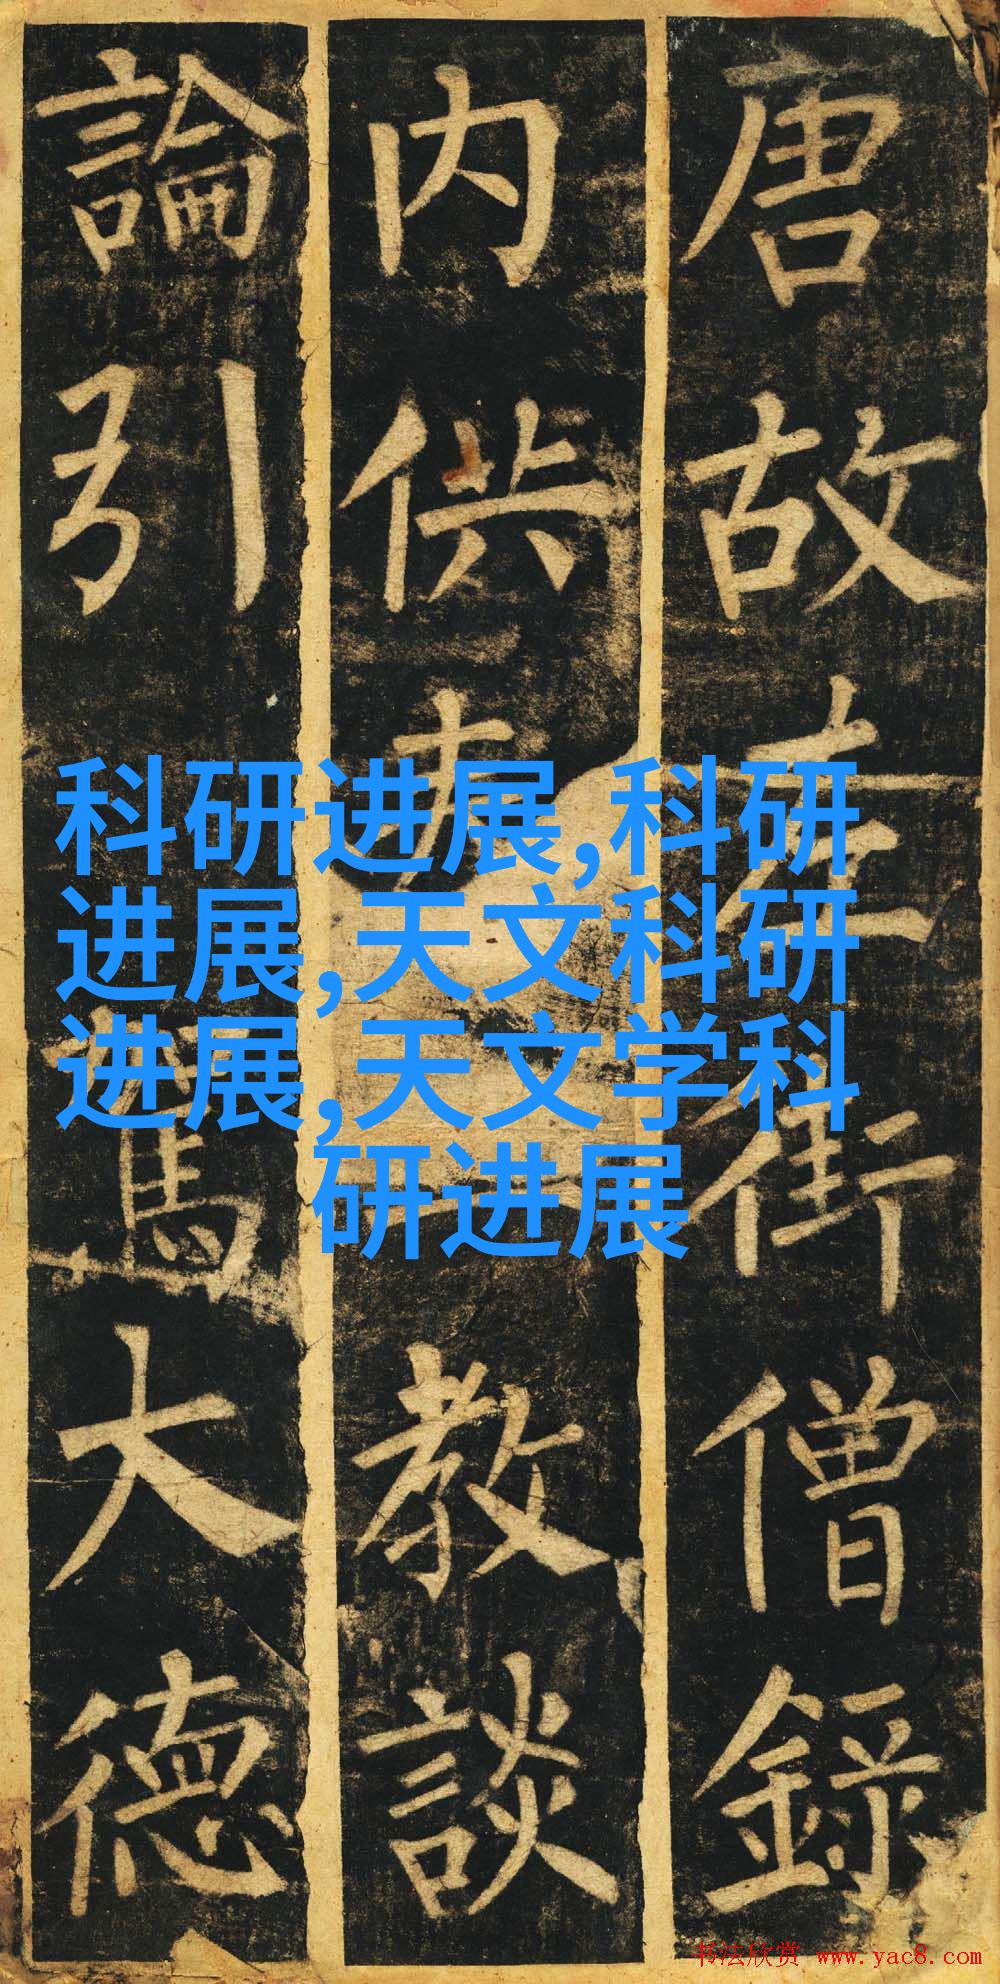 唐故左街僧錄
内供教談
論引駕大德
科研进展,科研
进展,天文科研
进展,天文学科
研进展
书法欣赏 www.yac8.com